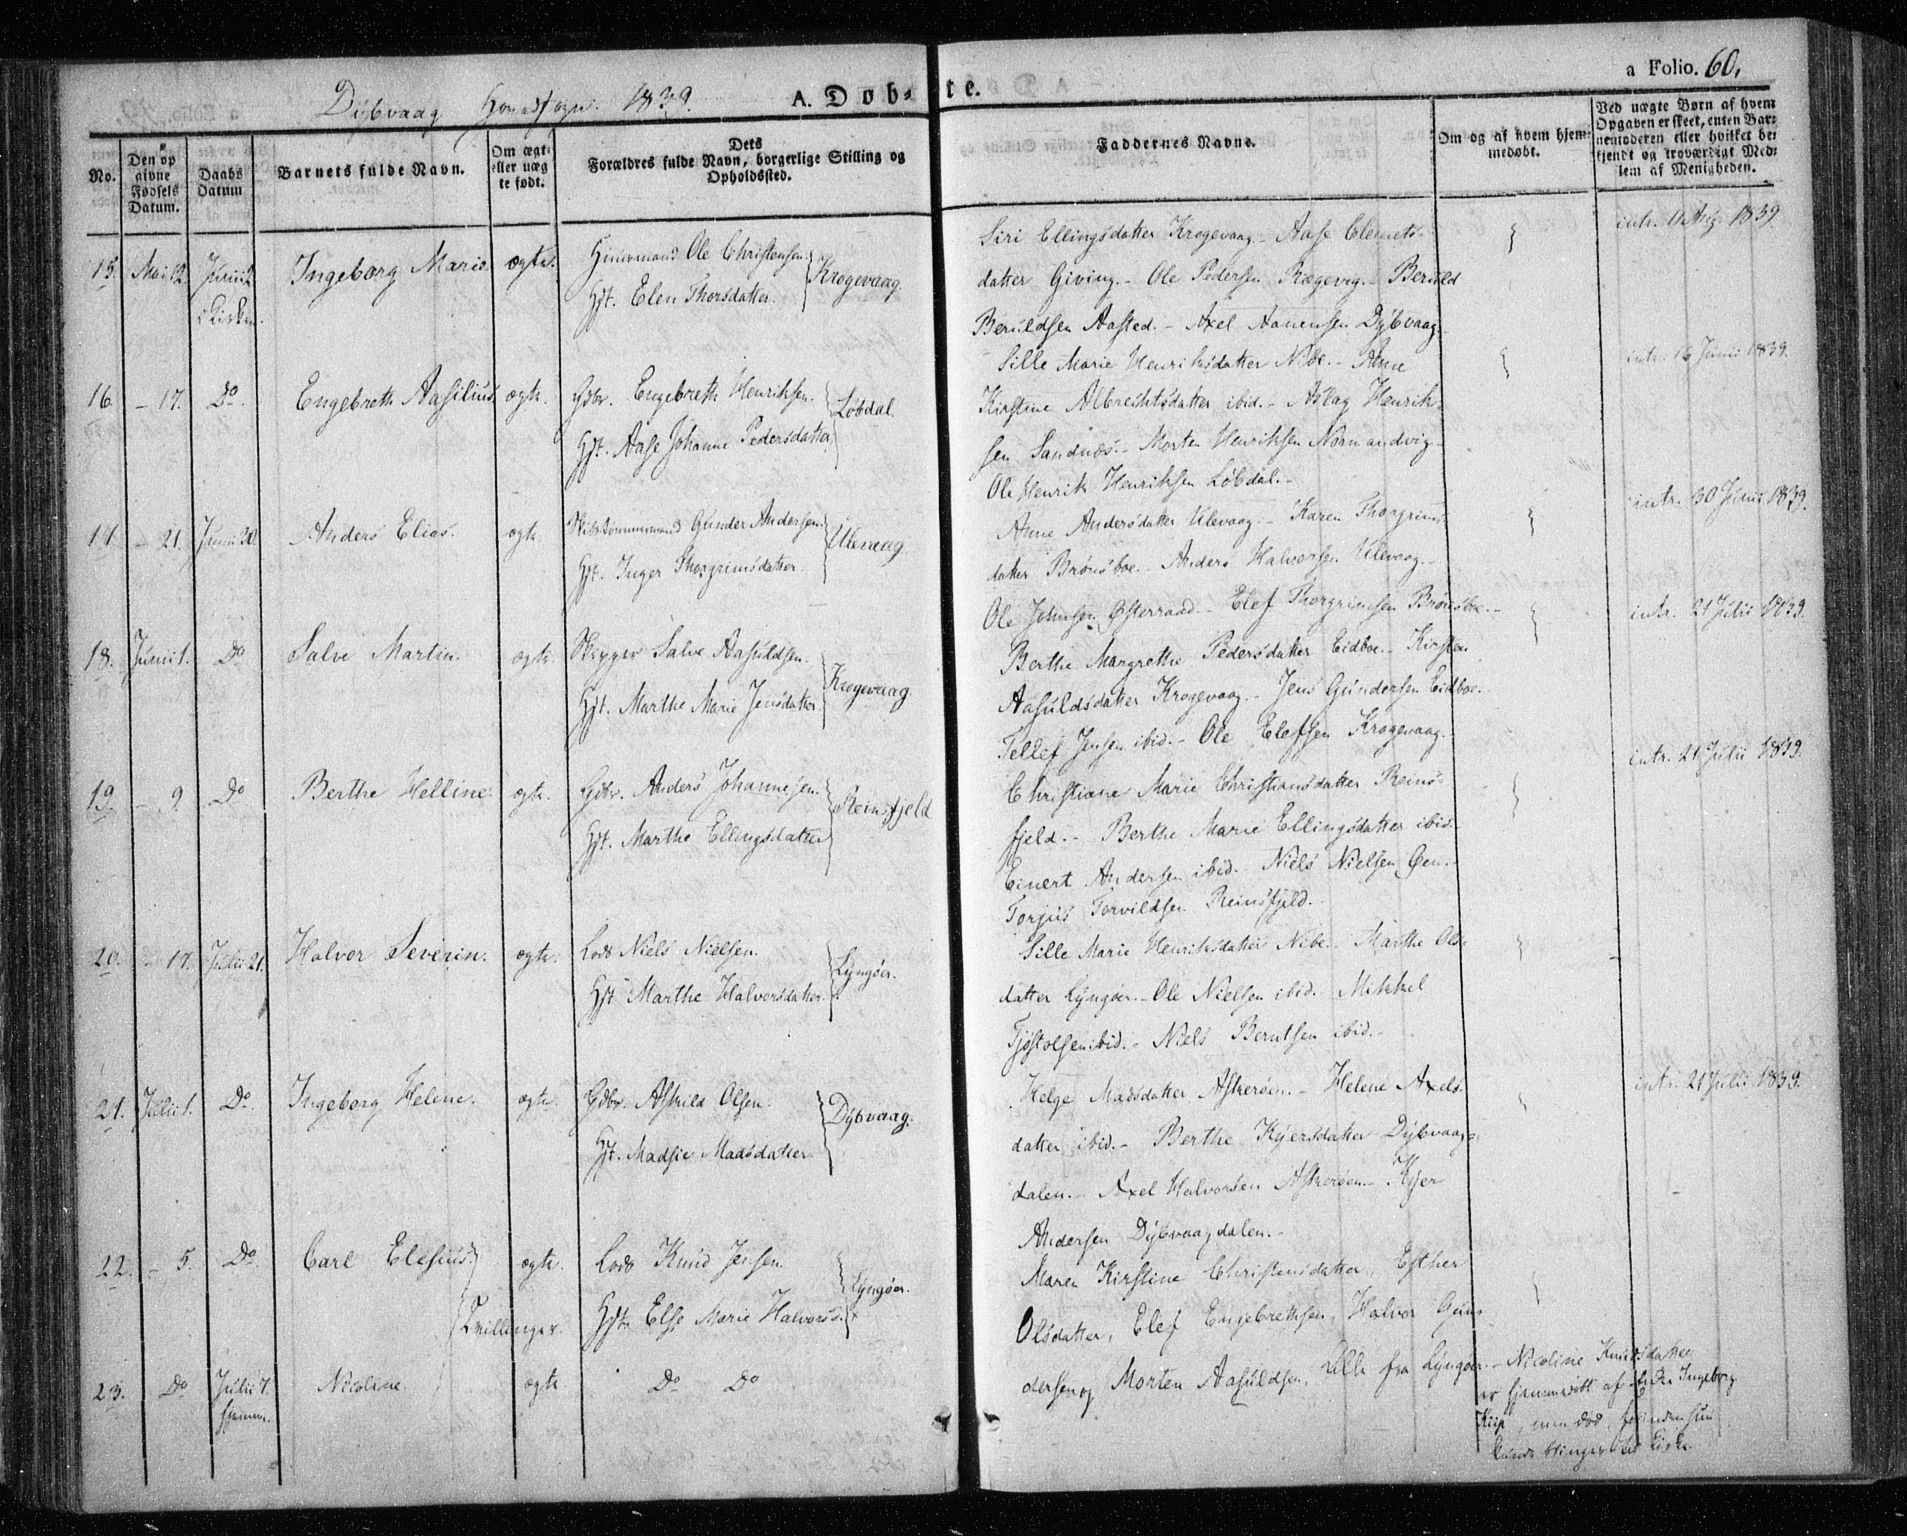 Dybvaag Hovedsogn. 1839. A. Døbte. a Folio. 60.
No.
Den opgivne Fødsels Datum.
Daabs Datum
Barnets fulde Navn.
Om ægte eller uægte født.
Dets Forældres fulde Navn, borgerlige Stilling og Opholdssted.
Faddernes Navne.
Om og af hvem hjemmedøbt.
Ved uægte Børn af hvem Opgaven er skeet, enten Barnemoderen eller hvilket bekjendt og troværdigt Medlem af Menigheden.
15. Mai 12. Junii 2 i Kirken. Ingeborg Marie. ægte. Huusmand Ole Christensen Hst. Elen Thorsdatter. Krogevaag.
Siri Ellingsdatter Krogevaag.- Aase Clemets-
datter Giving.- Ole Pedersen Rægevig.- Beruld
Beruldsen Aasted.- Axel Aanensen Dybvaag.
intr. Aug. 1839
16. - 17. Do. Engebreth Aasilius. ægte. Gdbr. Engebreth Henriksen. Hst. Aase Johanne Pedersdatter Løbdal.
Sille Marie Henriksdatter Nibe.- Anne
Kirstine Albrechtsdatter ibid.- Aslag Henrik-
sen Sandnæs.- Morten Henriksen Normandvig-
Ole Henrik Henriksen Løbdal.-
intr. 16 Junii 1839.
17 - 21. Junii 30. Anders Elias. ægte Skibstømmermand Gunder Andersen. Hst. Inger Thorgrimsdatter. Ulevaag
Anne Andersdatter Ulevaag.- Karen Thorgrims-
datter Brønsboe.- Anders Halvorsen Ulevaag.-
Ole Johnsen Østeraad.- Elef Thorgrimsen Brønsboe.-
intr. 30 Junii 1839.
18. Junii 1. Do Salve Martin. ægte Skipper Salve Aasuldsen. Hst. Marthe Marie Jensdatter Krogevaag.
Berthe Margrethe Pedersdatter Eidboe.- Kirsten
Aasuldsdatter Krogevaag.- Jens Gundersen Eidboe.
Tellef Jensen ibid.- Ole Elefsen Krogevaag.
intr. 21 Julii 1839.
19 - 9. Do Berthe Helline. ægte. Gdbr. Anders Johannesen. Hst. Marthe Ellingsdatter Reinsfjeld
Christiane Marie Christiansdatter Reins-
fjeld.- Berthe Marie Ellingsdatter ibid.
Einert Andersen ibid.- Niels Nielsen Øen.-
Torjus Torvildsen Reinsfjeld.-
intr. 21 Julii 1839.
20. - 17. Julii 21. Halvor Severin. ægte. Lods Niels Nielsen. Hst. Marthe Halvorsdatter. Lyngøer.
Sille Marie Henriksdatter Nibe.- Marthe Ols-
datter Lyngøer.- Ole Nielsen ibid.- Mikkel
Tjøstolsen ibid.- Niels Berntsen ibid.-
21. Julii 1. Do. Ingeborg Helene. ægte. Gdbr. Askild Olsen. Hst. Madsie Madsdatter Dybvaag.
Helge Madsdatter Askerøen.- Helene Axels-
datter ibid.- Berthe Kjersdatter Dybvaag-
dalen.- Axel Halvorsen Askerøen.- Kjer
Andersen Dybvaagdalen.-
intr. 21 Julii 1839.
22. - 5. Do. Carl Elesius. Tvillinger. ægte. Lods Knud Jensen. Hst. Else Marie Halvorsd. Lyngøer.
Maren Kirstine Christensdatter, Esther
Olsdatter, Elef Engebrethsen, Halvor Gun-
dersen og Morten Aasuldsen, alle fra Lyngøer.
23. Do Julii 7. hjemme. Nicoline. ægte Do Do
- Nicoline Knudsdatter
er hjemmedøbt af Ingeborg
Kiip, men død, forinden hun
kunde bringes til Kirke.